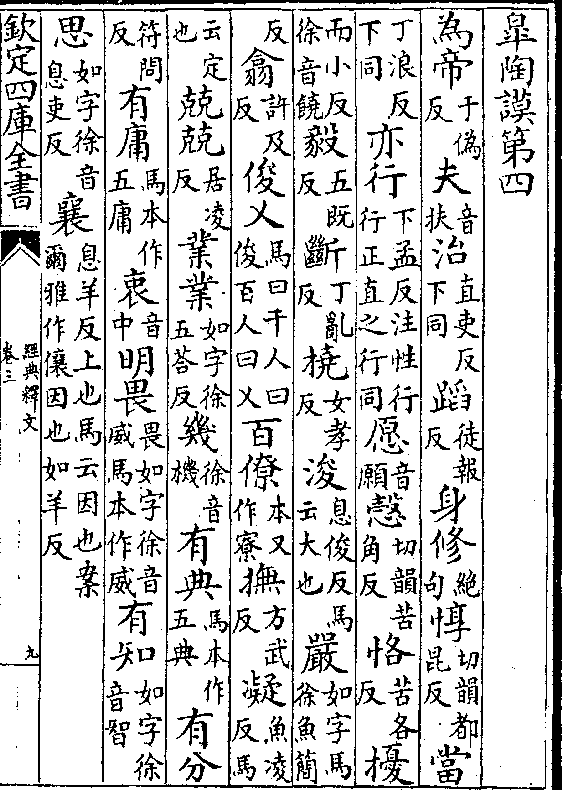 臯陶謨第四
為帝于偽反夫音扶治直吏反下同蹈徒報反身修絶句惇切韻都昆反當
丁浪反下同亦行下孟反注性行行正直之行同愿音願慤切韻苦角反恪苦各反擾
而小反徐音饒毅五既反斷丁亂反橈女孝反浚息俊反馬云大也嚴如字馬徐魚簡
反翕許及反俊乂馬曰千人曰俊百人曰乂百僚本又作寮撫方武反凝魚凌反馬
云定也兢兢居凌反業業如字徐五荅反幾徐音機有典馬本作五典有分
符問反有庸馬本作五庸衷音中明畏畏如字徐音威馬本作威有知如字徐音智
思如字徐音息吏反襄息羊反上也馬云因也案爾雅作儴因也如羊反
欽定四庫全書
經典釋文
卷三
九